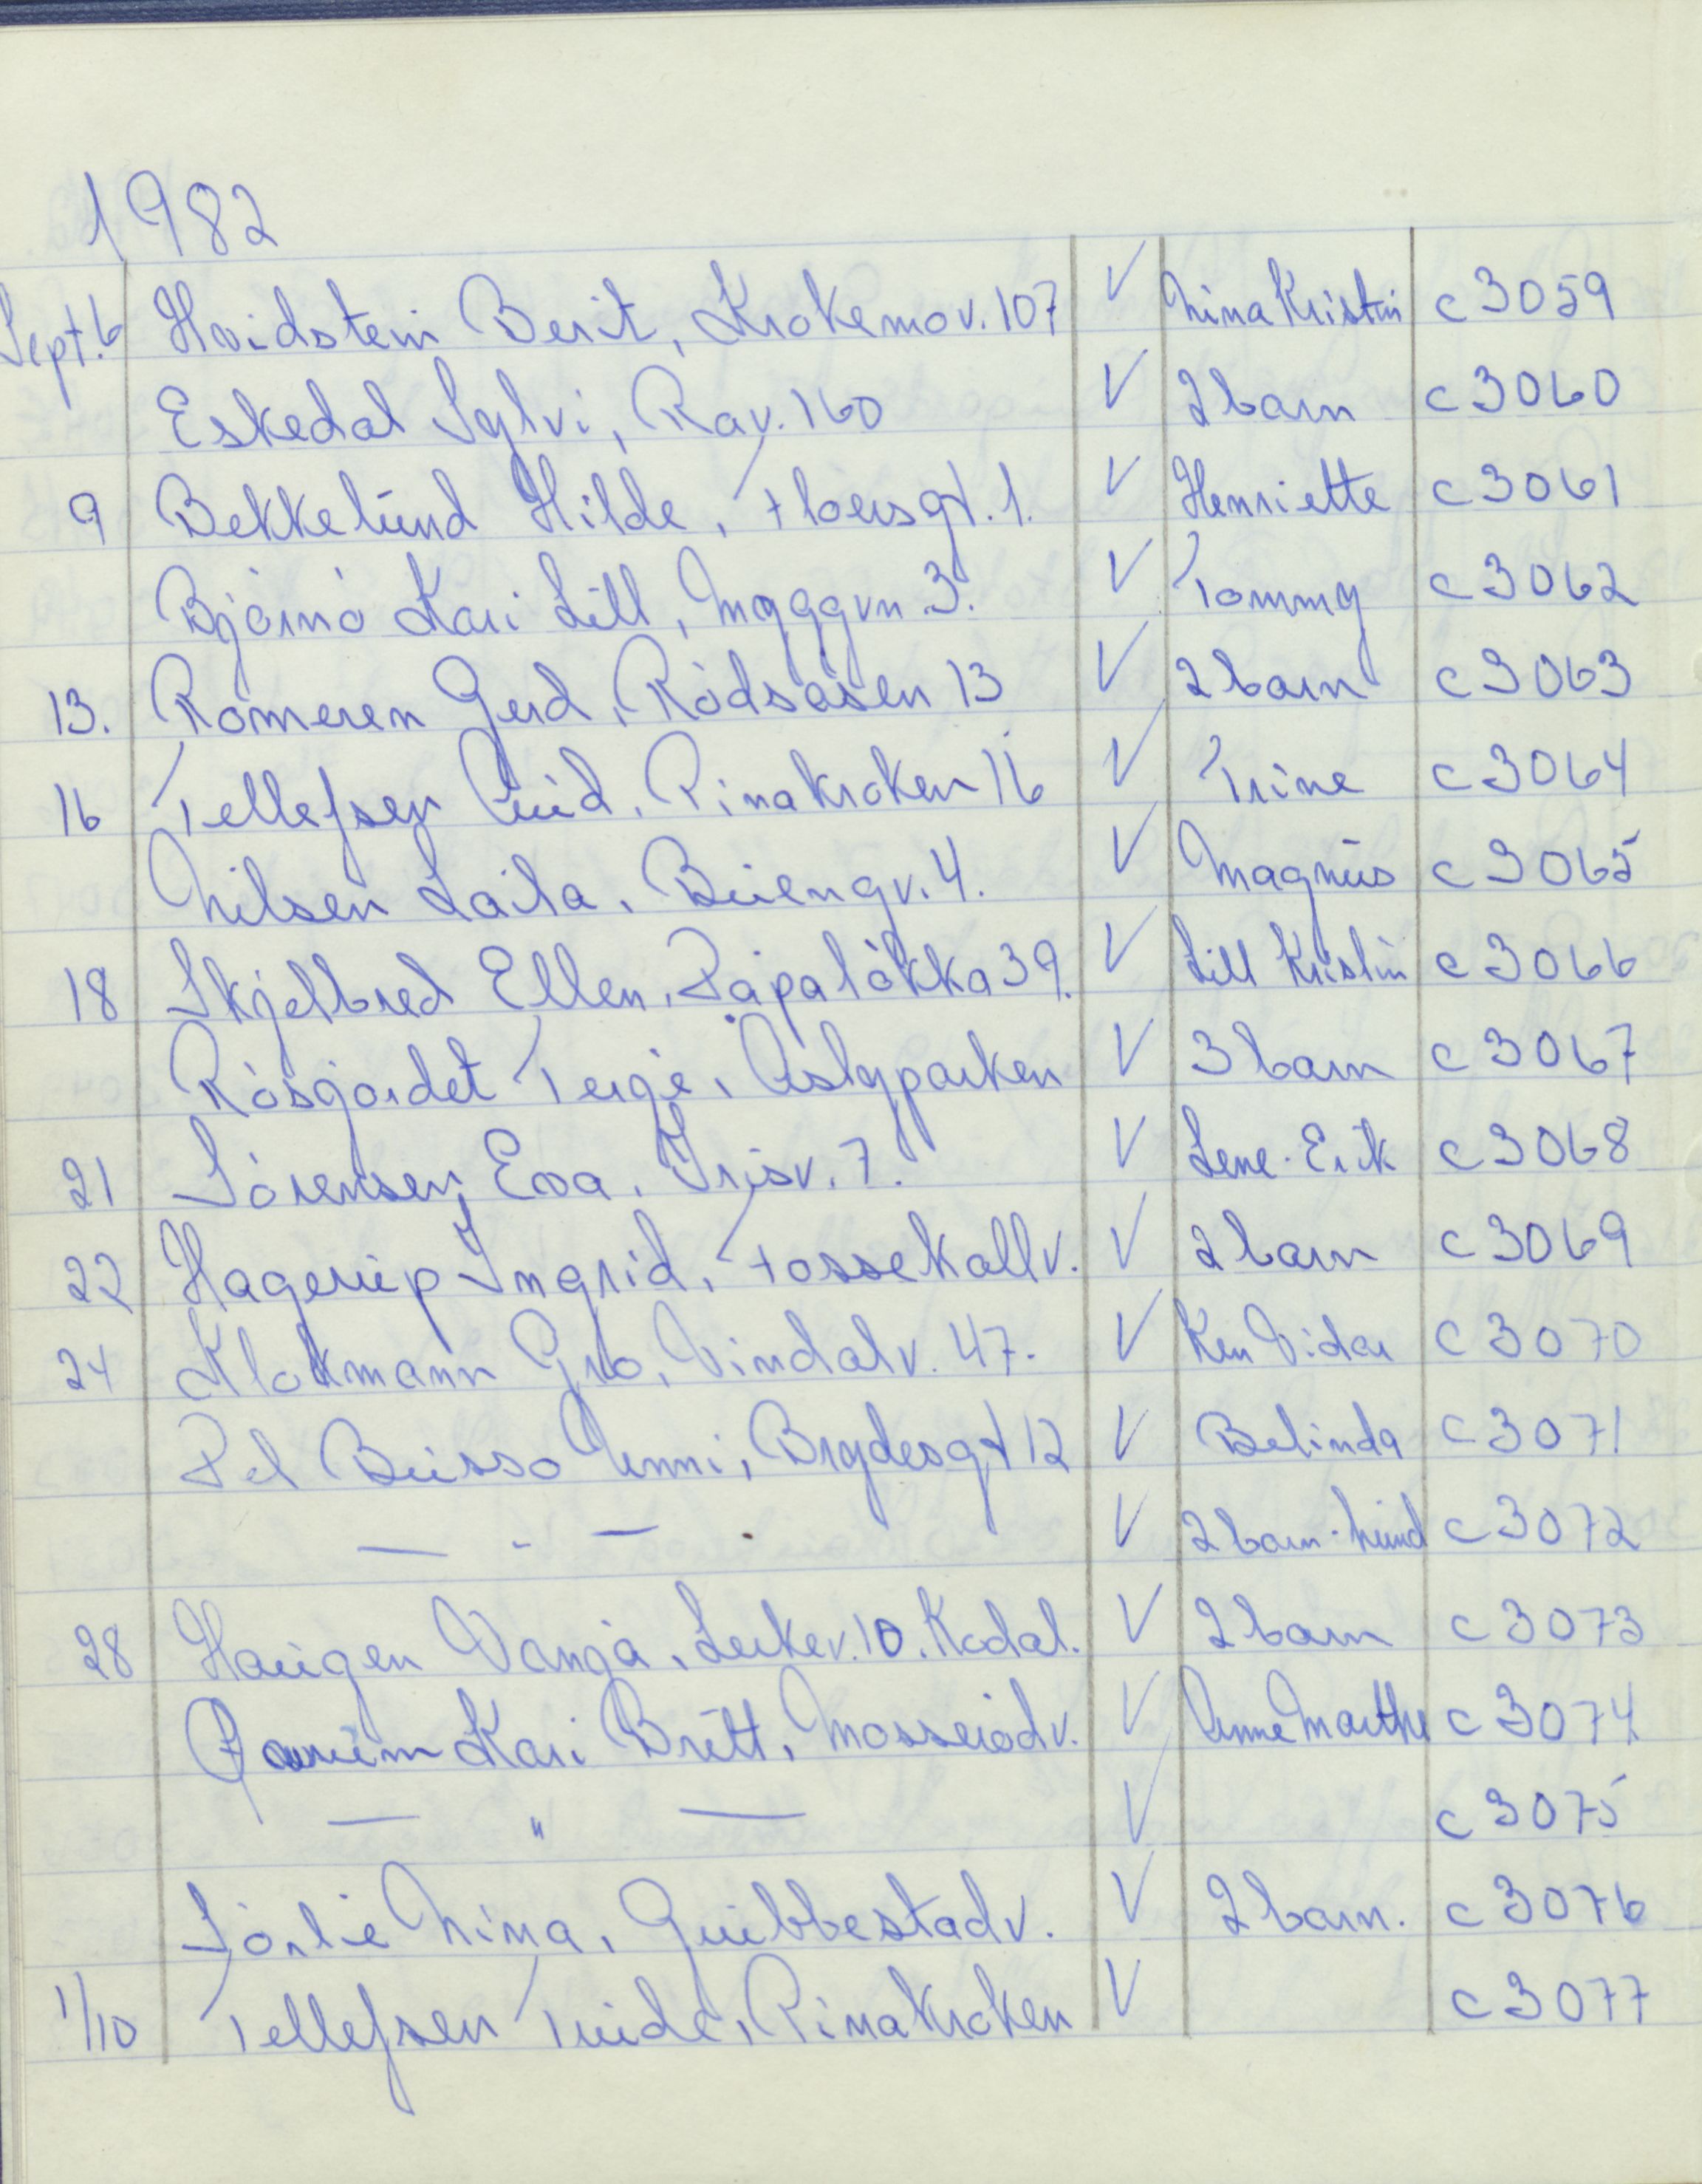 1982
Sept. 6 Hvidstein Berit, Krokemov. 107 V Nina Kristin c 3059
Eskedal Sylvi, Rav. 160 V 2 barn c 3060
9 Bekkelund Hilde, Floersgt. 1. V Henriette c 3061
Bjørnø Kari Lill, Myggvn. 3. V Tommy c 3062
13. Rømeren Gerd, Rødsåsen 13 V 2 barn c 3063
16 Tellefsen Turid, Pinakroken 16 V Trine c 3064
Nilsen Laila, Buengv. 4. V Magnus c 3065
18 Skjelbred Ellen, Påpaløkka 39. V Lill Kristin c 3066
Røsgårdet Terje, Østbyparken V 3 barn c 3067
21 Sørensen Eva, Irisv. 7. V Lene - Erik c 3068
22 Hagerup Ingrid, Fossekallv. V 2 barn c 3069
24 Klokmann Gro, Vindalv. 47. V Ken Vidar c 3070
Del Busso Unni, Brydesgt 12 V Belinda c 3071
— " — V 2 barn - hund c 3072
28 Haugen Vanja, Lerkev. 10. Kodal. V 2 barn c 3073
Kari Britt, Mosserødv. V Anne Marthe c 3074
— " — V c 3075
Sørlie Nina, Grubbestadv. V 2 barn. c 3076
1/10 Tellefsen Turid, Pinakroken V c 3077